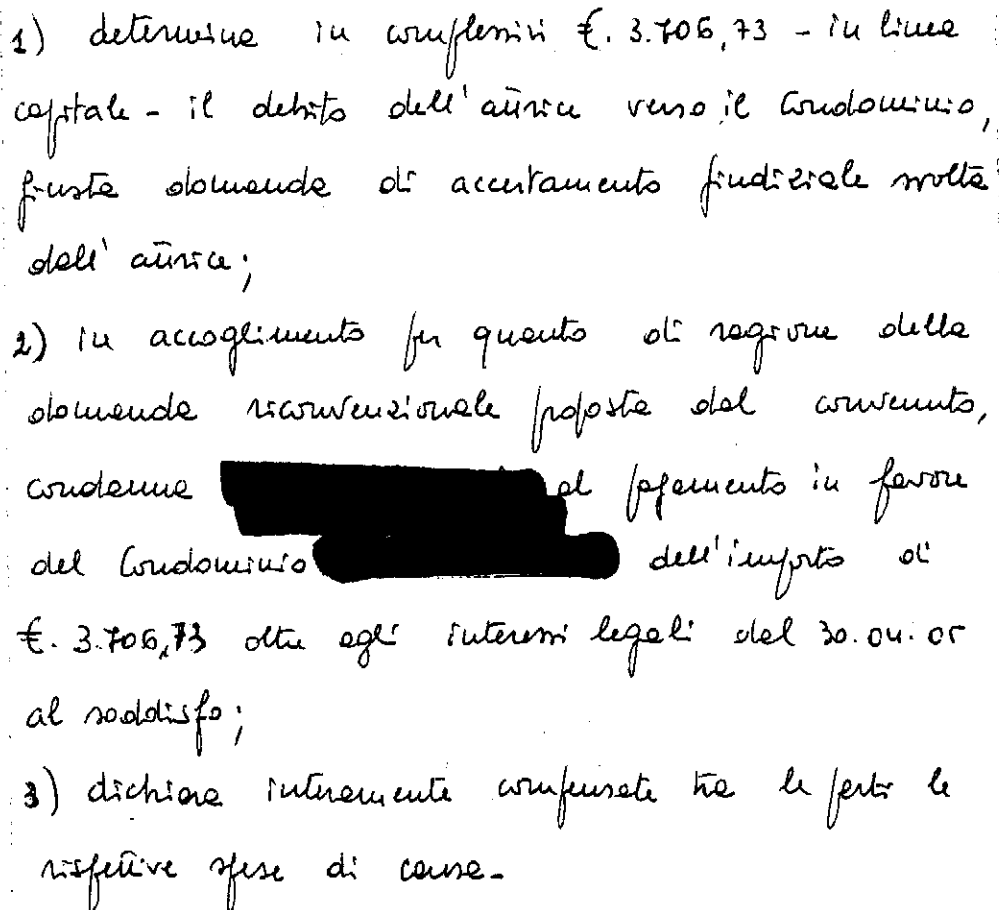 1) determina in complessivi €. 3.706,73 - in linea
capitale - il debito dell'attrice verso il Condominio,
giusta domanda di accertamento giudiziale svolta
dall'attrice;
2) in accoglimento per quanto di ragione della
domanda riconvenzionale proposta dal convenuto,
condanna al pagamento in favore
del Condominio dell'importo di
€. 3.706,73 oltre agli interessi legali dal 30.04.05
al soddisfo;
3) dichiara interamente compensate tra le parti le
rispettive spese di causa-